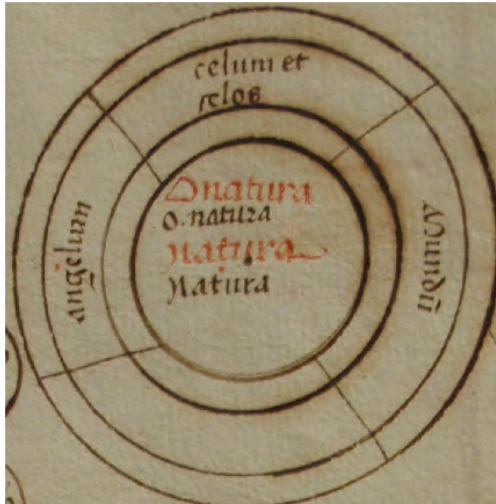 celum et
angelum
O natura
o. natura
natura
natura